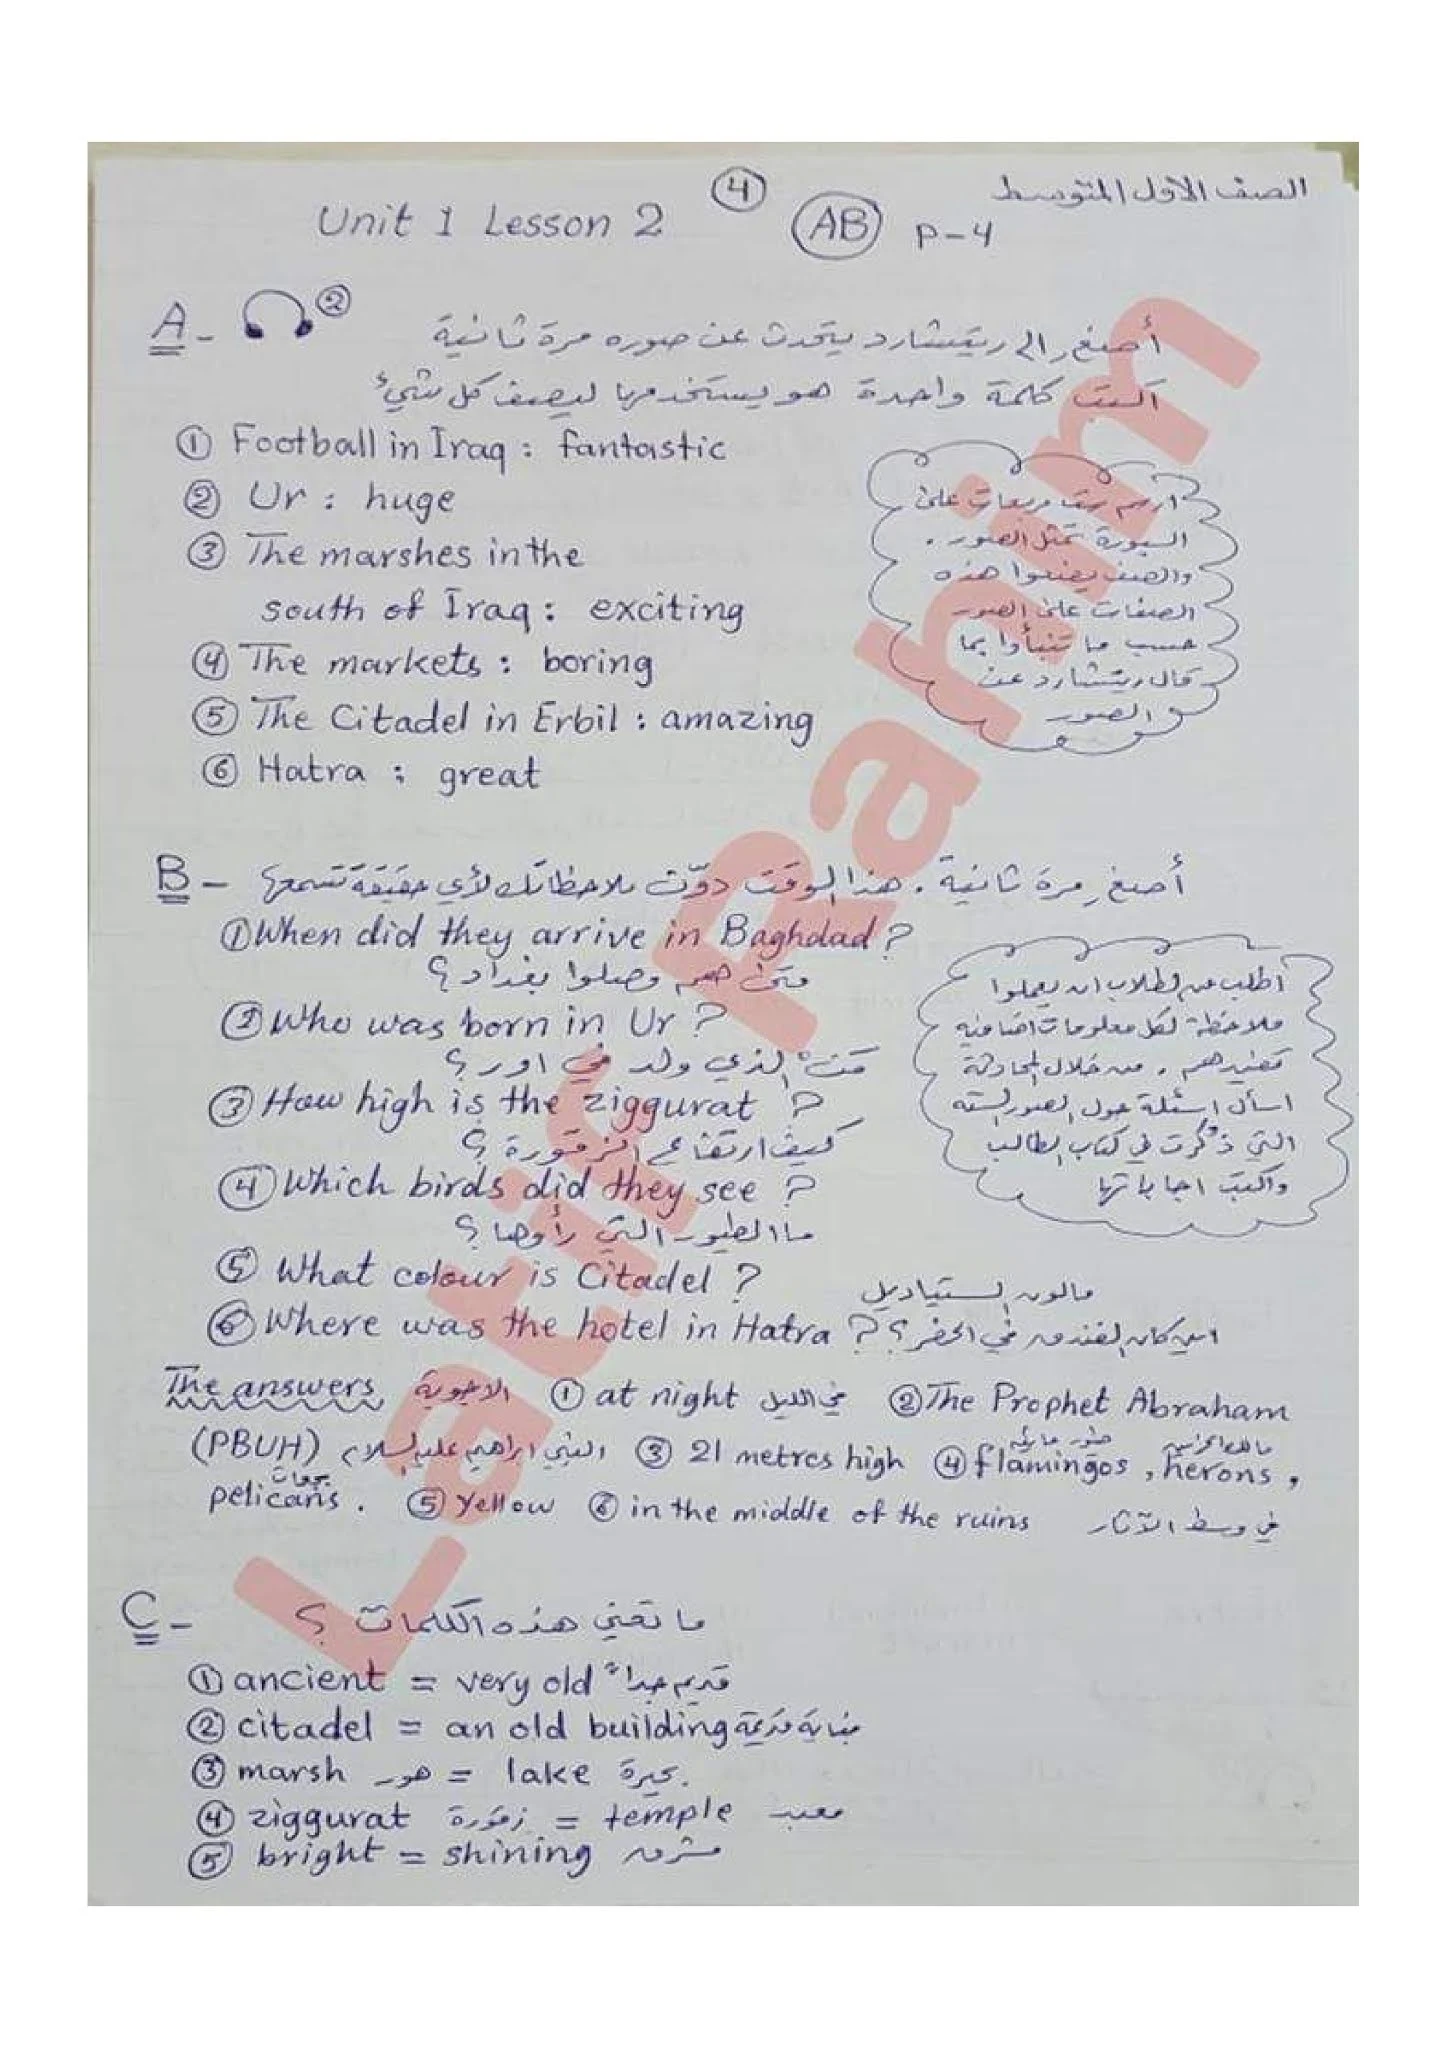 الصف الأول المتوسط
4
Unit 1 Lesson 2 AB P-4
A - 2 أصغ إلى ريتشارد يتحدث عن صوره مرة ثانية
اكتب كلمة واحدة هو يستخدمها ليصف كل شيء
① Football in Iraq : fantastic
② Ur : huge
③ The marshes in the
south of Iraq : exciting
④ The markets : boring
⑤ The Citadel in Erbil : amazing
⑥ Hatra : great
ارسم ست مربعات على
السبورة تمثل الصور .
والصف يضعوا هذه
الصفات على الصور
حسب ما تنبأوا بما
قال ريتشارد عن
الصور
B - أصغ مرة ثانية . هذا الوقت دوّن ملاحظاتك لأي حقيقة تسمعها
① When did they arrive in Baghdad ?
متى هم وصلوا بغداد ؟
② Who was born in Ur ?
من الذي ولد في اور ؟
③ How high is the ziggurat ?
كيف ارتفاع الزقورة ؟
④ Which birds did they see ?
ما الطيور التي رأوها ؟
⑤ What colour is Citadel ? مالون الستياديل
⑥ Where was the hotel in Hatra ? اين كان الفندق في الحضر ؟
اطلب من الطلاب ان يعملوا
ملاحظة لكل معلومات اضافية
تفيدهم . من خلال المحادثة
اسأل اسئلة حول الصور الستة
التي ذكرت في كتاب الطالب
واكتب اجاباتها
The answers الاجوبة ① at night في الليل ② The Prophet Abraham
(PBUH) النبي ابراهيم عليه السلام ③ 21 metres high ④ flamingos , herons ,
pelicans بجعات . ⑤ Yellow ⑥ in the middle of the ruins في وسط الآثار
C - ما تعني هذه الكلمات ؟
① ancient = very old قديم جداً
② citadel = an old building بناية قديمة
③ marsh هور = lake بحيرة
④ ziggurat زقورة = temple معبد
⑤ bright = shining مشرق
Latif Rahim